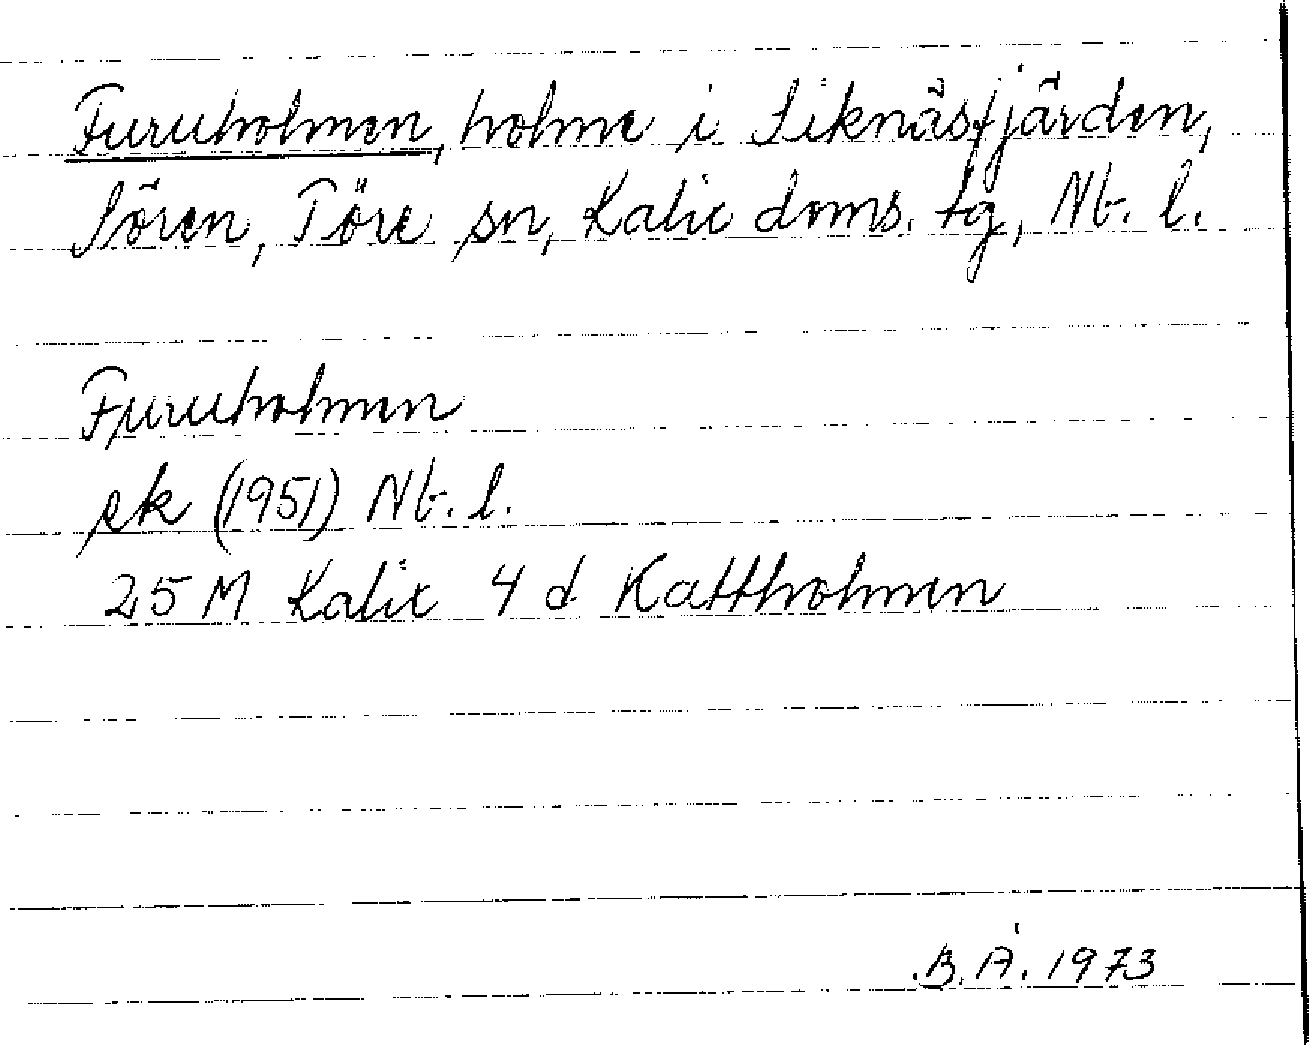 Furuholmen, holme i Siknäsfjärden,
Sören, Töre sn, Kalix doms. tg, Nb. l.
Furuholmen
ek (1951) Nb. l.
25 M Kalix 4 d Kattholmen
B. Å. 1973